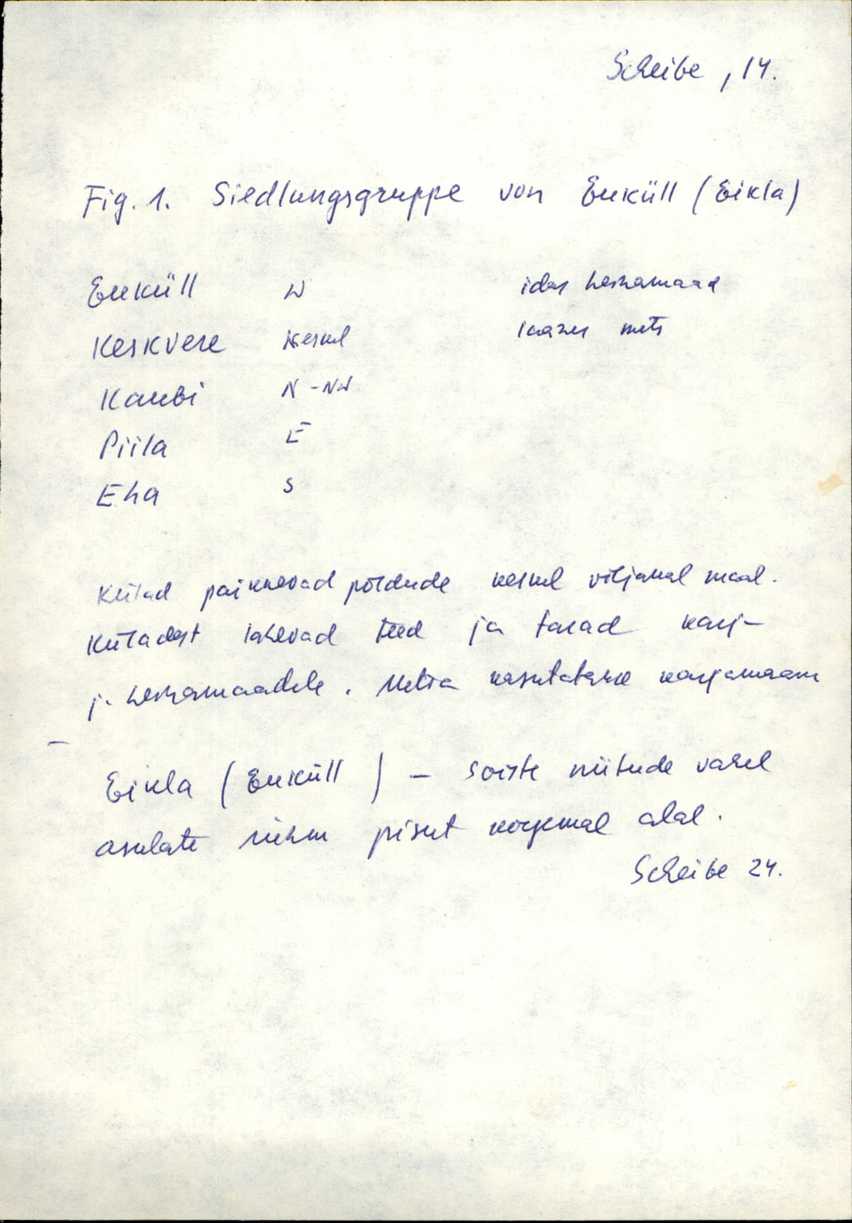 Scheibe, 14.
Fig. 1. Siedlungsgruppe von Euküll (Eikla)
Euküll W idas heinamaad
Keskvere keskel läänes mets
Kaubi N-NW
Piila E
Eha S
Külad paiknevad põldude keskel viljakal maal.
Küladest lähevad teed ja tarad karj-
ja heinamaadele. Metsa kasutatakse karjamaana
Eikla (Euküll) – soiste niitude vahel
asulate rühm pisut kõrgemal alal.
Scheibe 24.